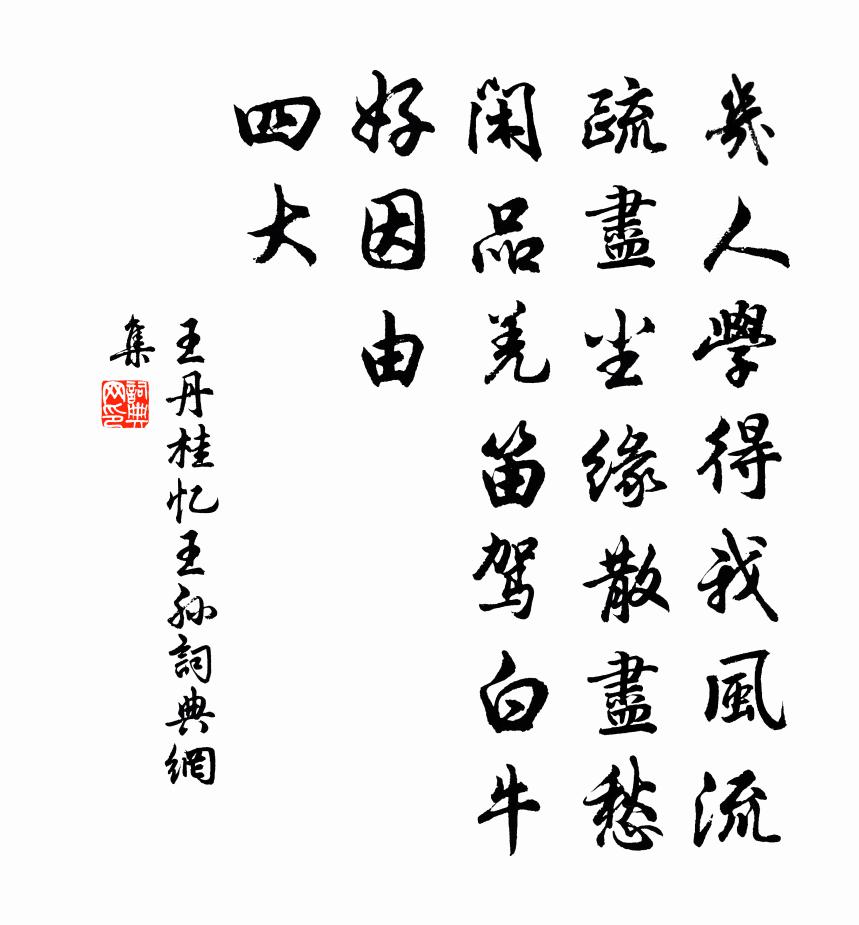 幾人學得我風流
疏盡塵緣散盡愁
閑品羌笛駕白牛
好因由
四大
王丹桂忆王孙詞典網
集
詞典
网印